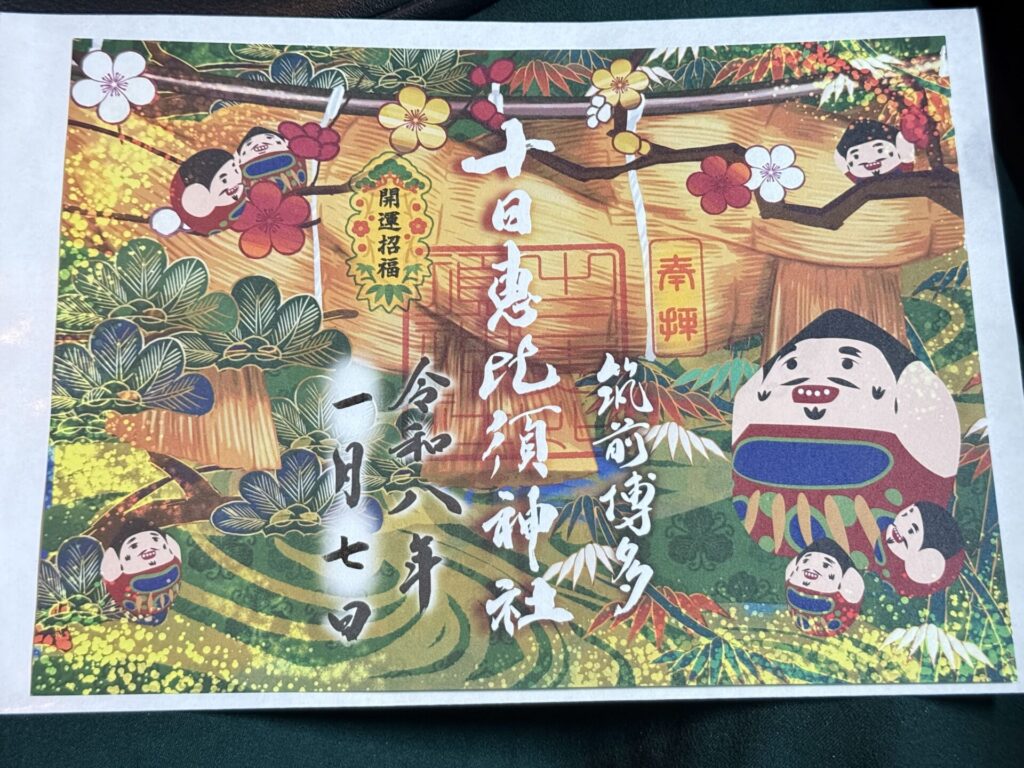 奉拝
筑前博多
十日恵比須神社
開運招福
令和八年
一月七日